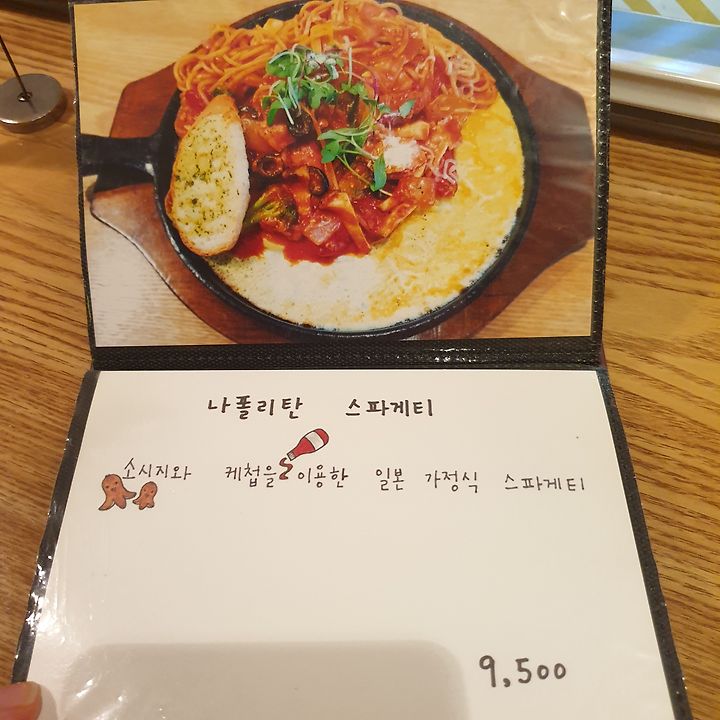 나폴리탄 스파게티
소시지와 케첩을 이용한 일본 가정식 스파게티
9,500